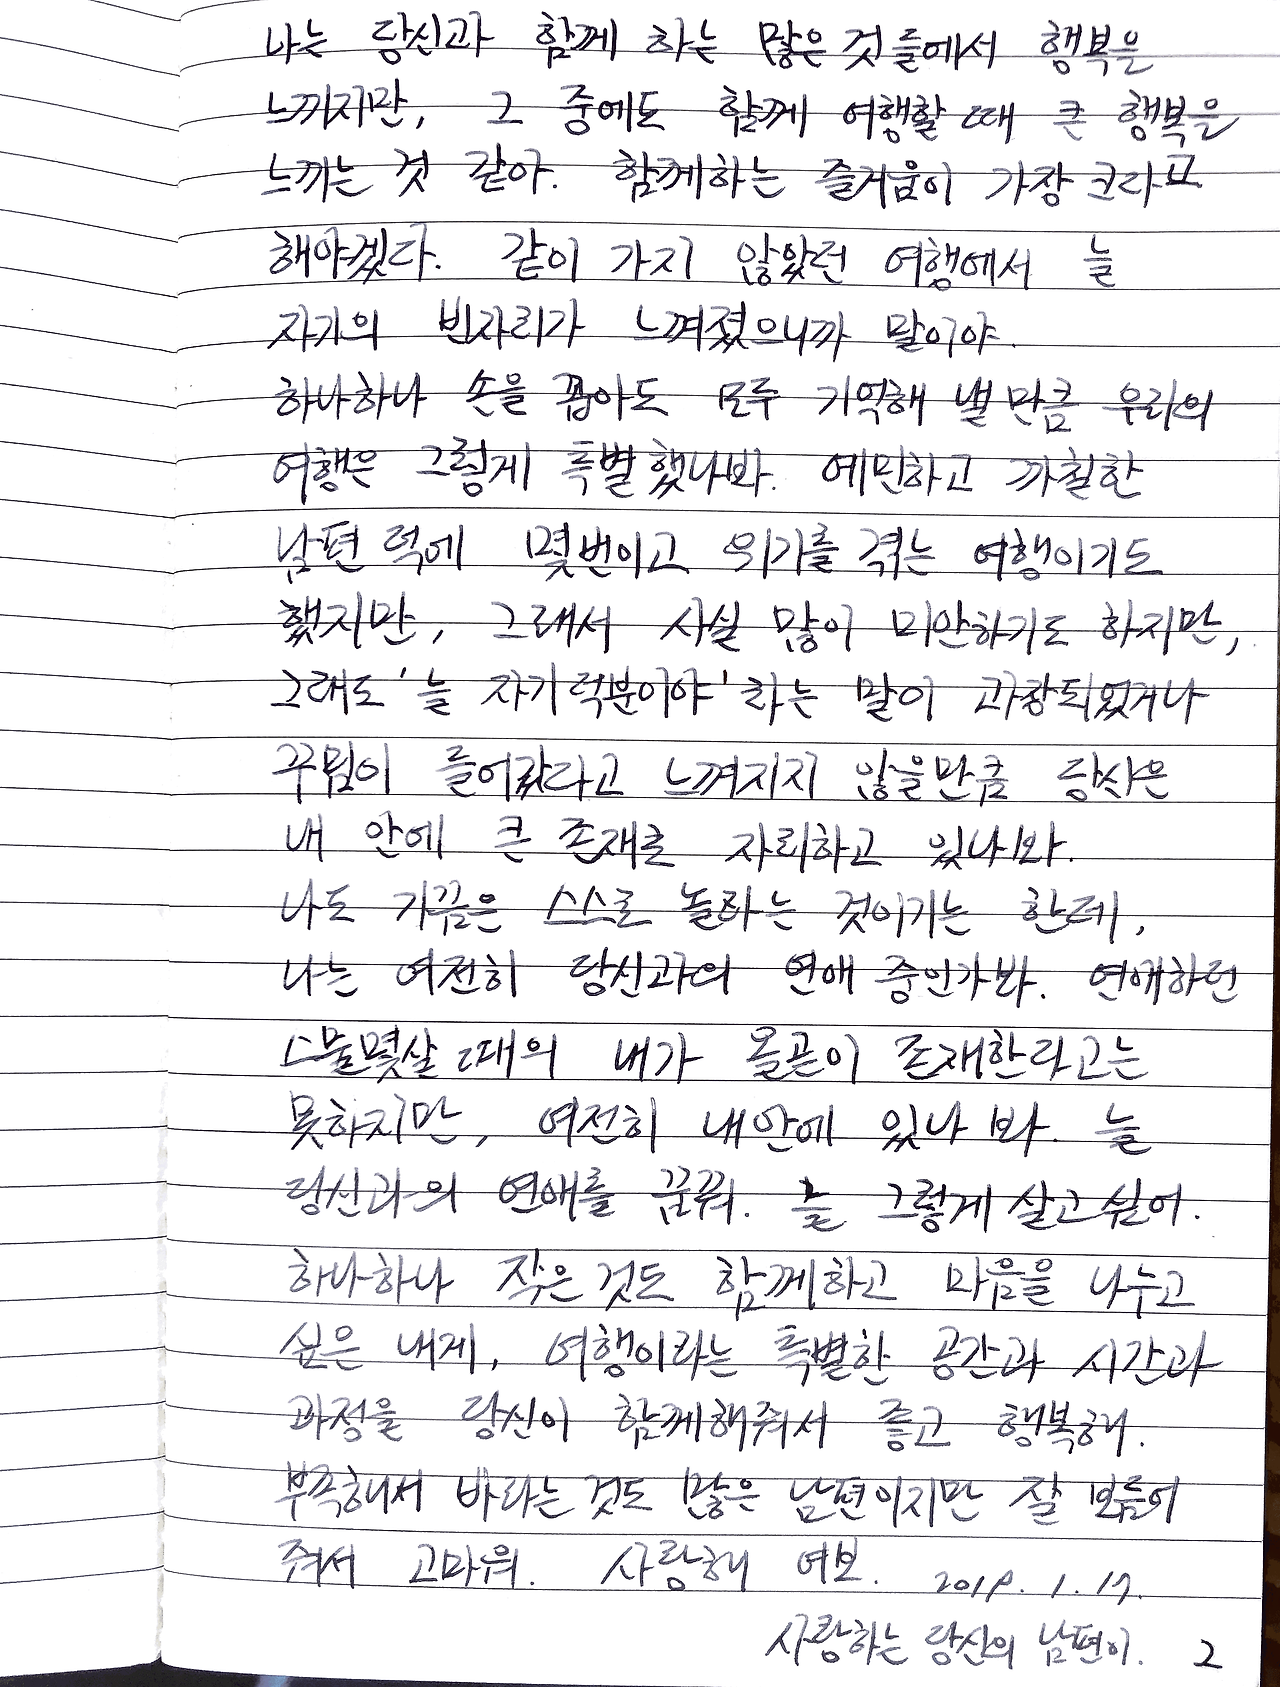 나는 당신과 함께 하는 많은 것들에서 행복은
느끼지만, 그 중에도 함께 여행할 때 큰 행복은
느끼는 것 같아. 함께하는 즐거움이 가장 크다고
해야겠다. 같이 가지 않았던 여행에서 늘
자기의 빈자리가 느껴졌으니까 말이야.
하나하나 손을 꼽아도 모두 기억해 낼 만큼 우리의
여행은 그렇게 특별했나봐. 예민하고 까칠한
남편 덕에 몇번이고 위기를 겪는 여행이기도
했지만, 그래서 사실 많이 미안하기도 하지만,
그래도 '늘 자기 덕분이야' 하는 말이 과장되었거나
꾸밈이 들어갔다고 느껴지지 않을만큼 당신은
내 안에 큰 존재로 자리하고 있나봐.
나도 가끔은 스스로 놀라는 것이기는 한데,
나는 여전히 당신과의 연애 중인가봐. 연애하던
스물몇살 때의 내가 올곧이 존재한다고는
못하지만, 여전히 내안에 있나 봐. 늘
당신과의 연애를 꿈꿔. 늘 그렇게 살고 싶어.
하나하나 작은 것도 함께하고 마음을 나누고
싶은 내게, 여행이라는 특별한 공간과 시간과
과정을 당신이 함께해줘서 좋고 행복해.
부족해서 바라는 것도 많은 남편이지만 잘 보듬어
줘서 고마워. 사랑해 여보. 2019. 1. 17.
사랑하는 당신의 남편이. 2